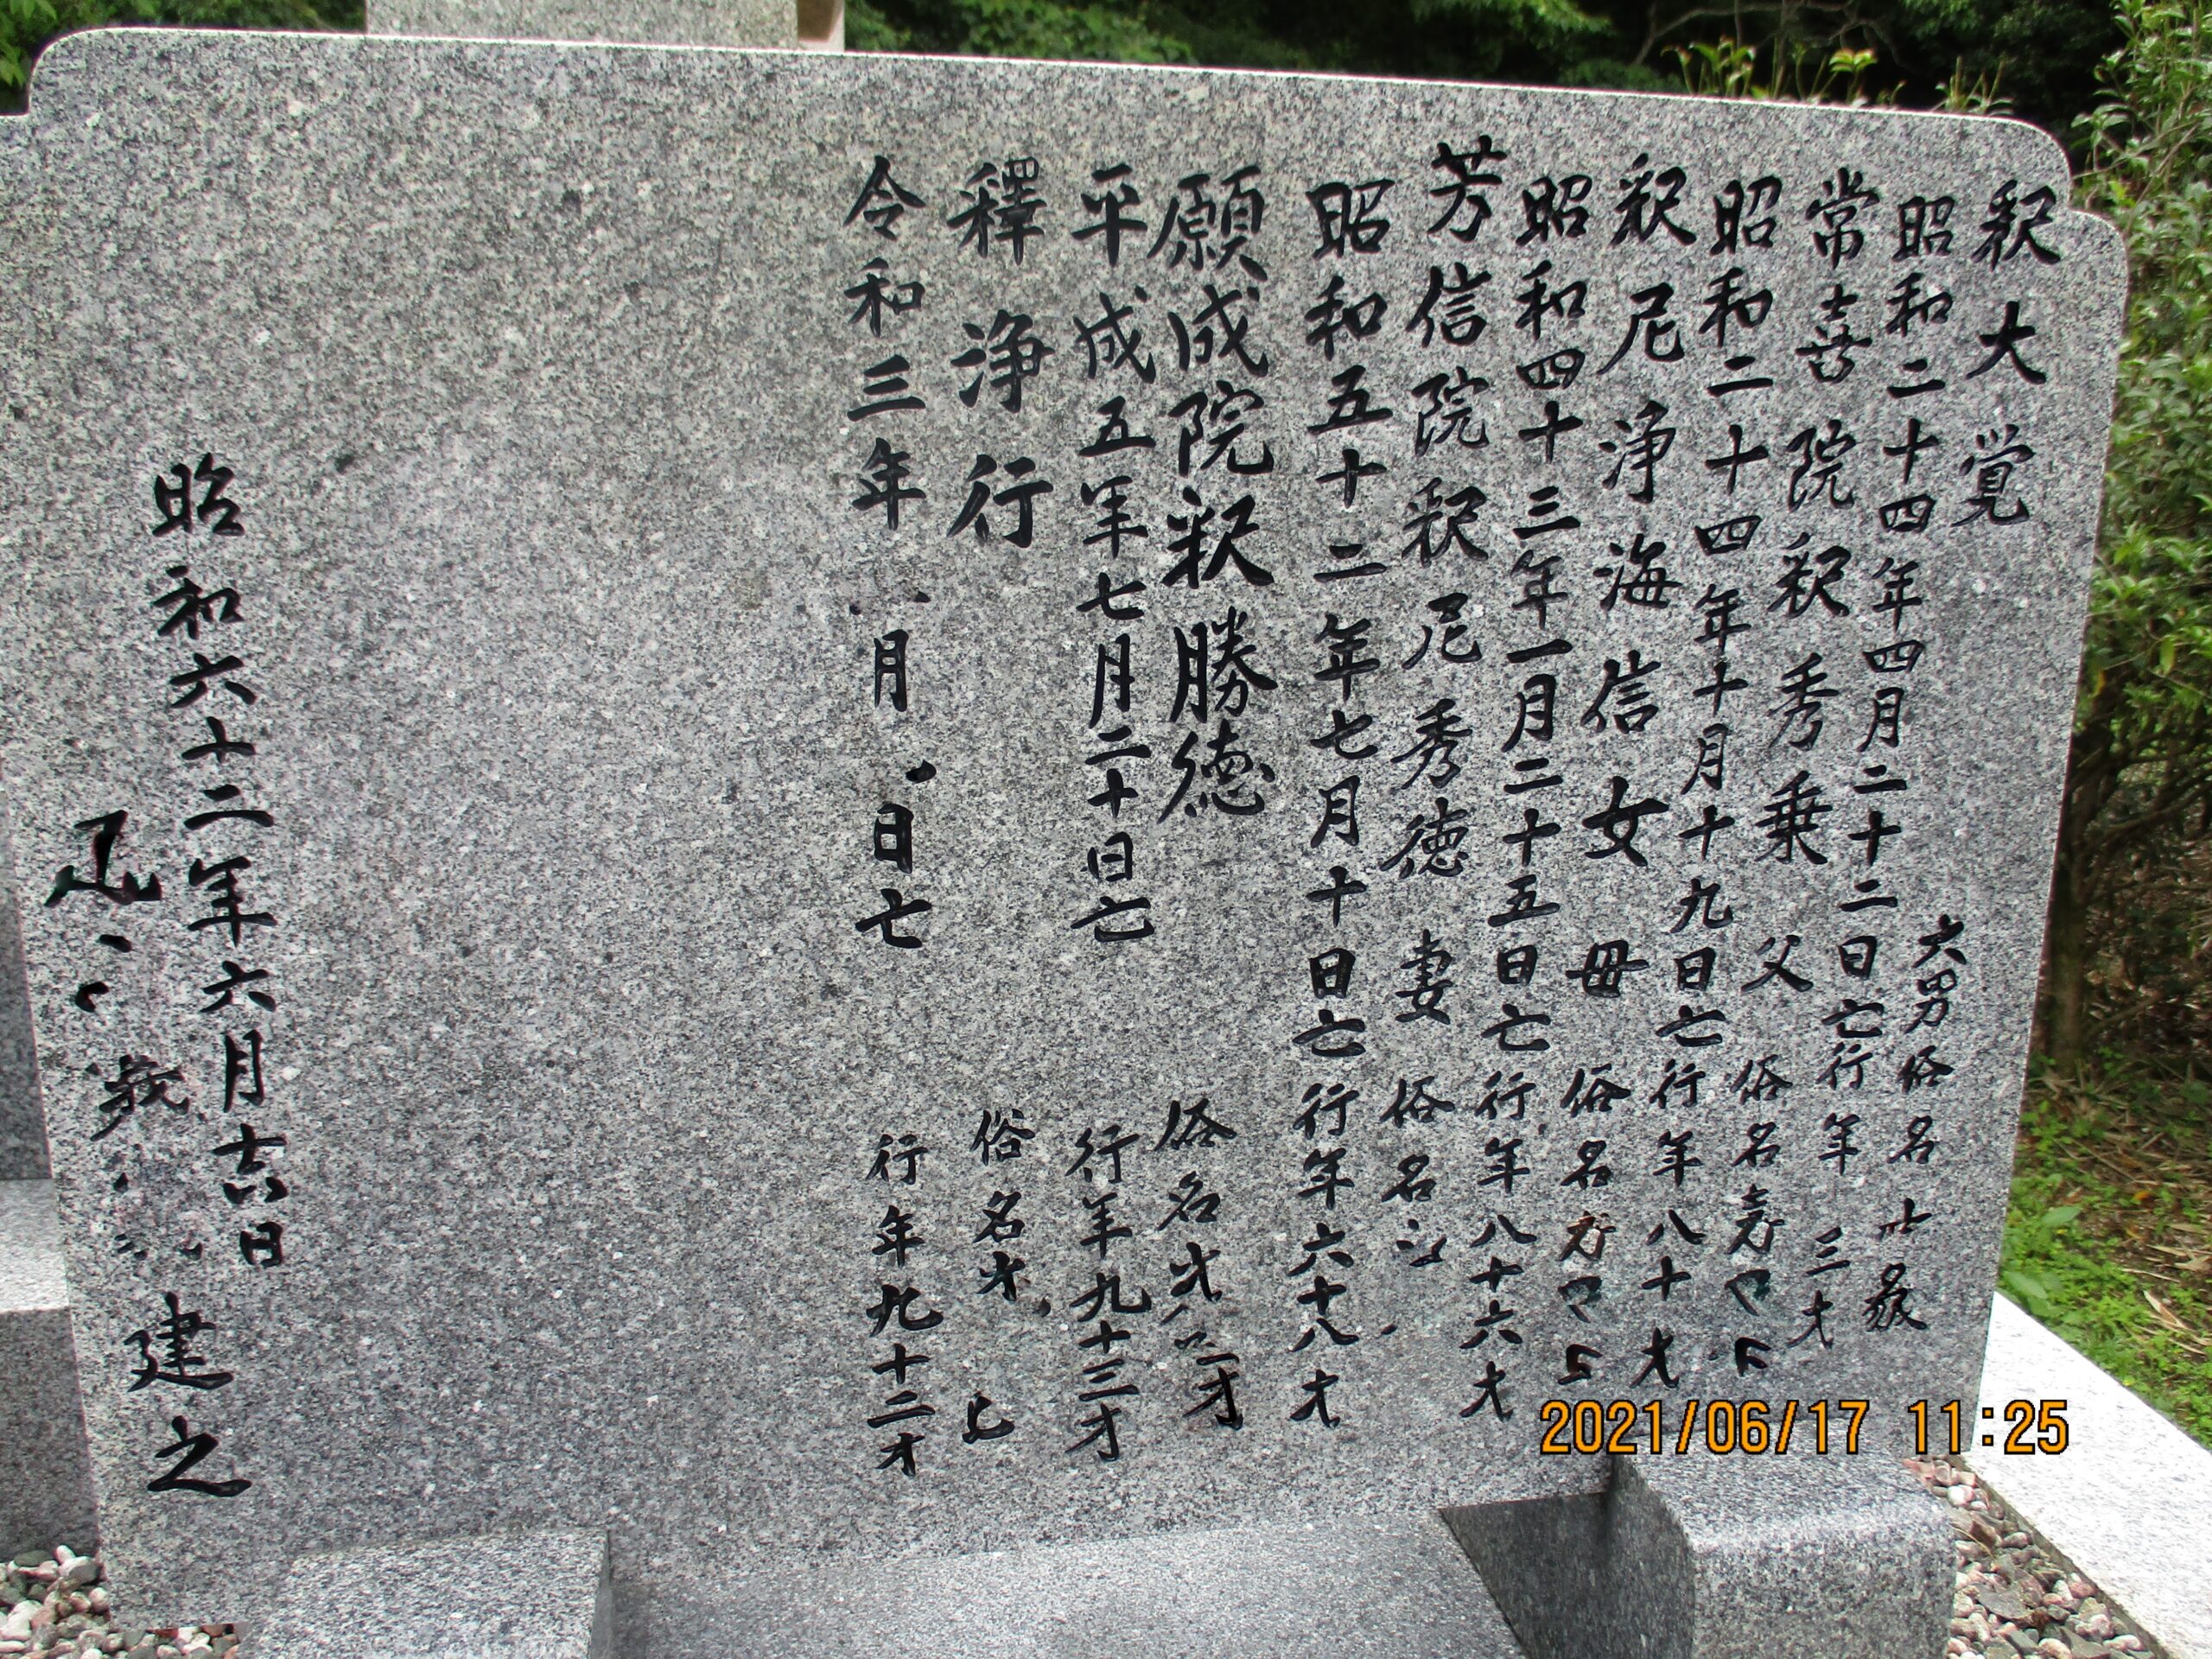 釈大覚 六男 俗名
昭和二十四年四月二十二日亡 行年 三才
常喜院釈秀乗 父 俗名
昭和二十四年十月十九日亡 行年八十才
釈尼浄海信女 母 俗名
昭和四十三年一月二十五日亡 行年八十六才
芳信院釈尼秀徳 妻 俗名
昭和五十二年七月十日亡 行年六十八才
願成院釈勝徳 俗名
平成五年七月二十日亡 行年九十三才
釋浄行 俗名
令和三年 月 日亡 行年九十二才
昭和六十二年六月吉日
建之
2021/06/17 11:25